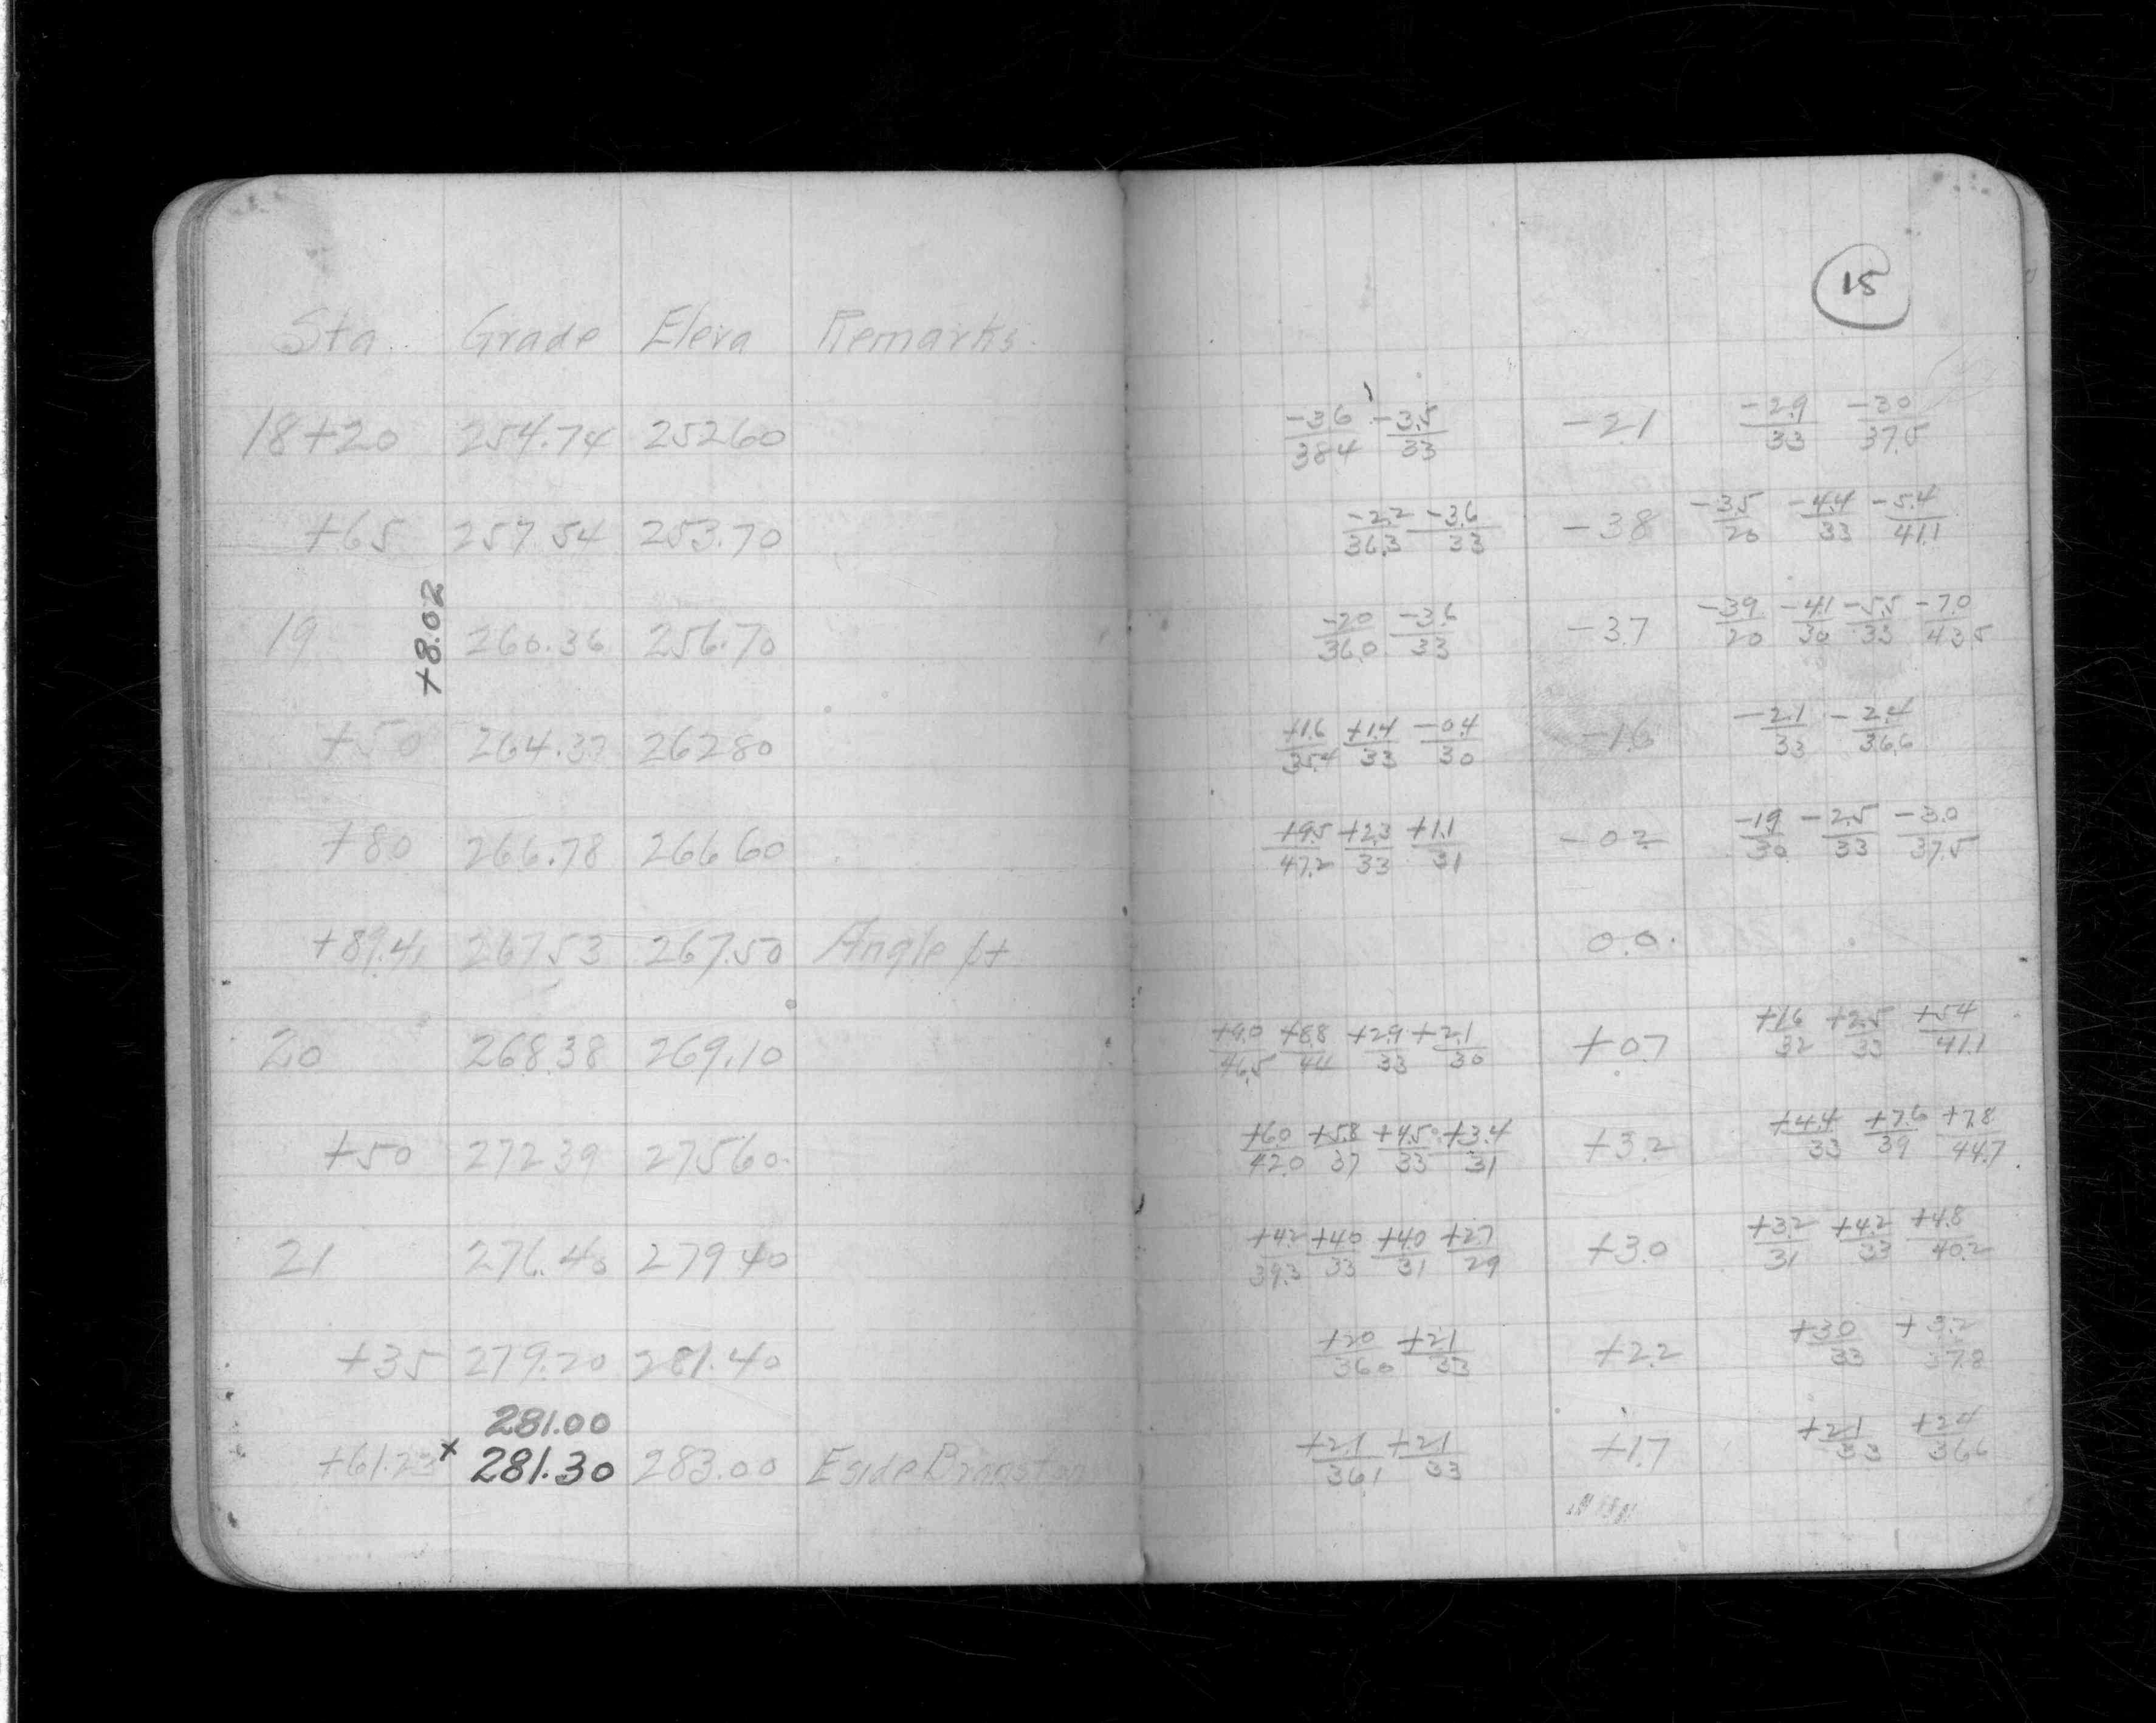 15
Sta. Grade Eleva Remarks.
18+20 254.74 252.60 -3.6/38.4 -3.5/33 -2.1 -2.9/33 -3.0/37.5
+65 257.54 253.70 -2.2/36.3 -3.6/33 -3.8 -3.5/20 -4.4/33 -5.4/41.1
+8.02
19 260.36 256.70 -2.0/36.0 -3.6/33 -3.7 -3.9/20 -4.1/30 -5.5/33 -7.0/43.5
+50 264.37 262.80 +1.6/35.4 +1.4/33 -0.4/30 -1.6 -2.1/33 -2.4/36.6
+80 266.78 266.60 +9.5/47.2 +2.3/33 +1.1/31 -0.2 -1.9/30 -2.5/33 -3.0/37.5
+89.41 267.53 267.50 Angle pt 0.0.
20 268.38 269.10 +9.0/46.5 +8.8/44 +2.9/33 +2.1/30 +0.7 +1.6/32 +2.5/33 +5.4/41.1
+50 272.39 275.60 +6.0/42.0 +5.8/37 +4.5/33 +3.4/31 +3.2 +4.4/33 +7.6/39 +7.8/44.7
21 276.40 279.40 +4.2/39.3 +4.0/33 +4.0/31 +2.7/29 +3.0 +3.2/31 +4.2/33 +4.8/40.2
+35 279.20 281.40 +2.0/36.0 +2.1/33 +2.2 +3.0/33 +3.2/37.8
281.00
+61.23 x 281.30 283.00 E side +2.1/36.1 +2.1/33 +1.7 +2.1/33 +2.4/36.6